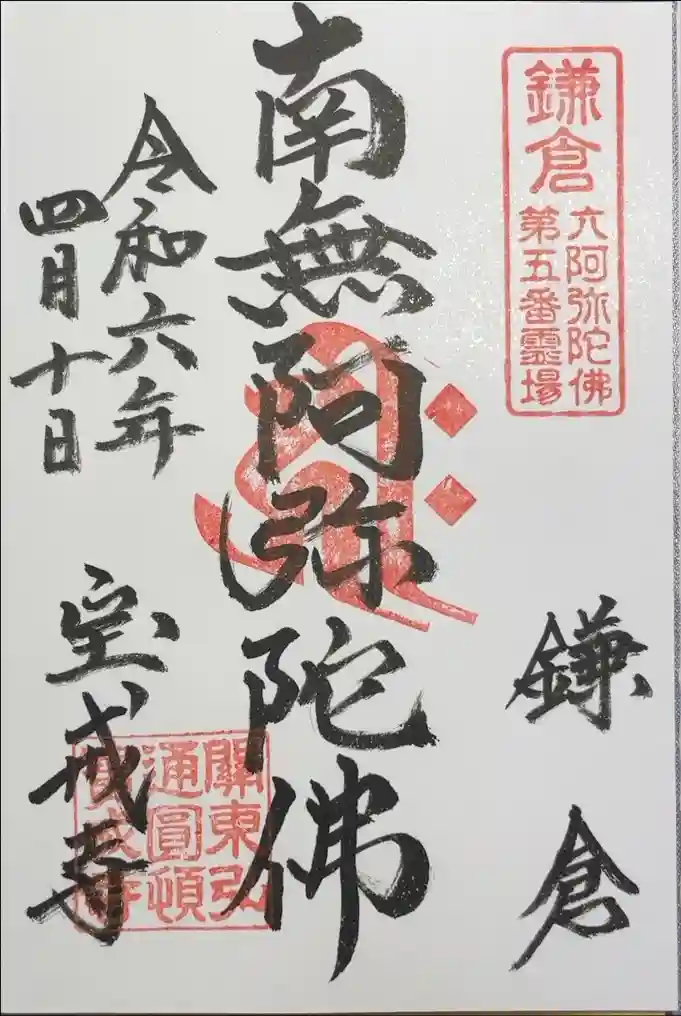 鎌倉
六阿弥陀佛
第五番霊場
鎌倉
南無阿弥陀佛
令和六年
四月十日
宝戒寺
關東弘
通圓頓
寶戒寺